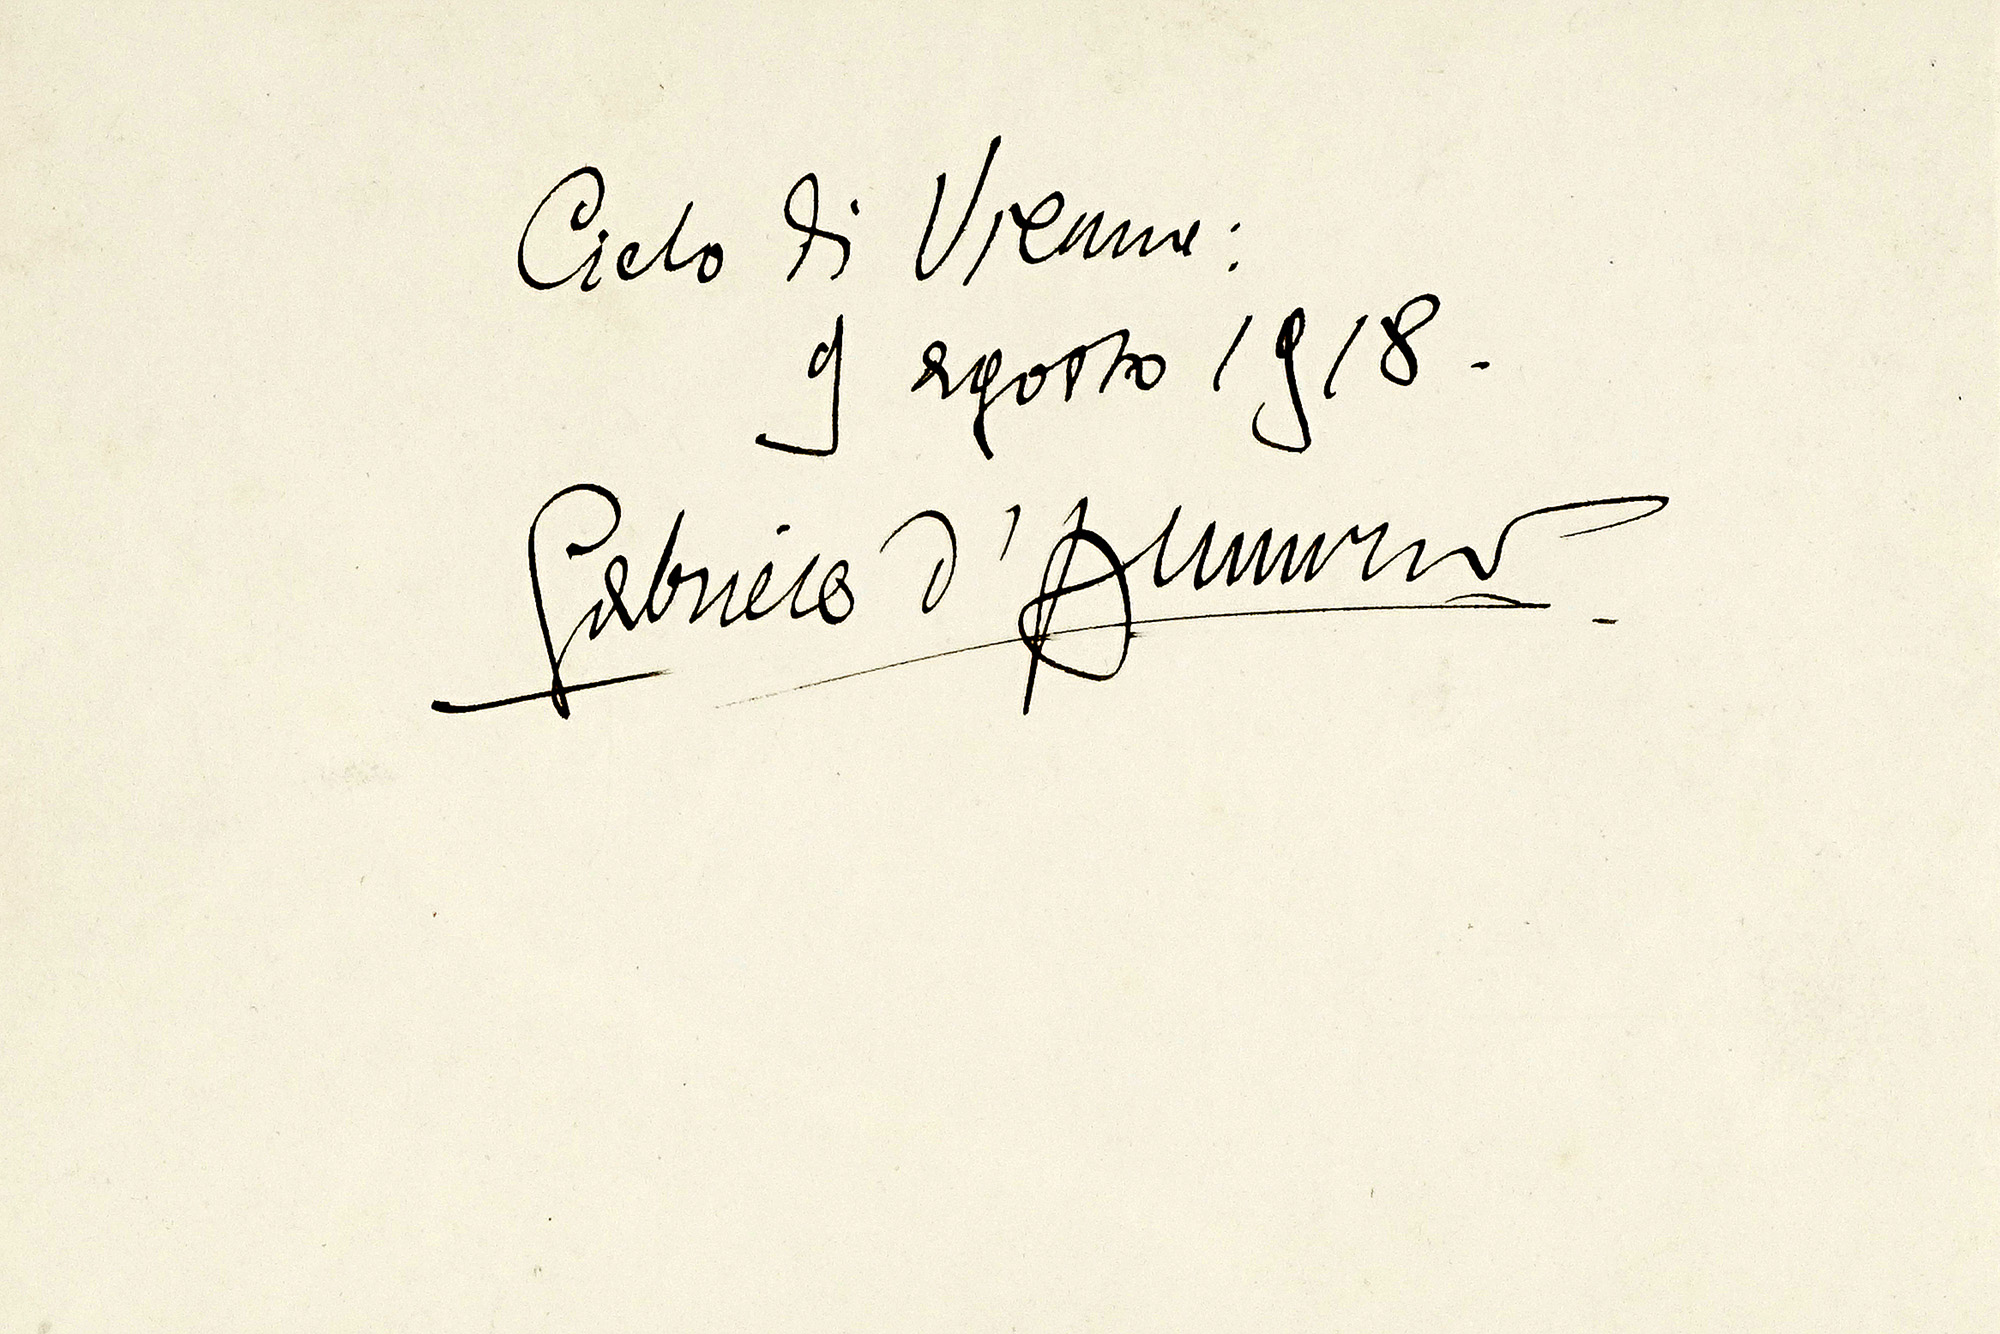 Cielo di Vienna:
9 agosto 1918.
Gabriele d'Annunzio.